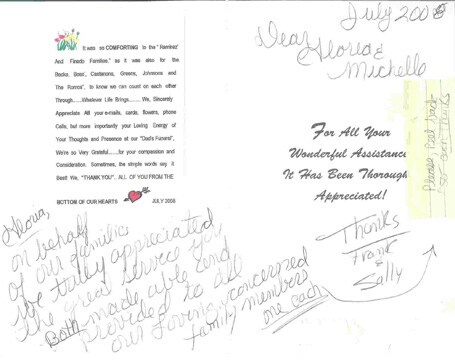 It was so COMFORTING to the "Ramirez
And Finedo Families," as it was also for the
Becks, Bass', Castanons, Greens, Johnsons and
The Ronros", to know we can count on each other
Through......Whatever Life Brings......... We, Sincerely
Appreciate All your e-mails, cards, flowers, phone
Calls, but more importantly your Loving Energy of
Your Thoughts and Presence at our "Dad's Funeral",
We're so Very Grateful......for your compassion and
Consideration. Sometimes, the simple words say it
Best! We, "THANK YOU". ALL OF YOU FROM THE
BOTTOM OF OUR HEARTS
JULY 2008
Gloria,
on behalf
of our families
we truly appreciated
the great service you
Both made able and
provided to all
our loving, concerned
family members
one each
July 2008
Dear
Gloria &
Michelle
For All Your
Wonderful Assistance
It Has Been Thorough
Appreciated!
Thanks
Frank
&
Sally
Please
Back
Thanks